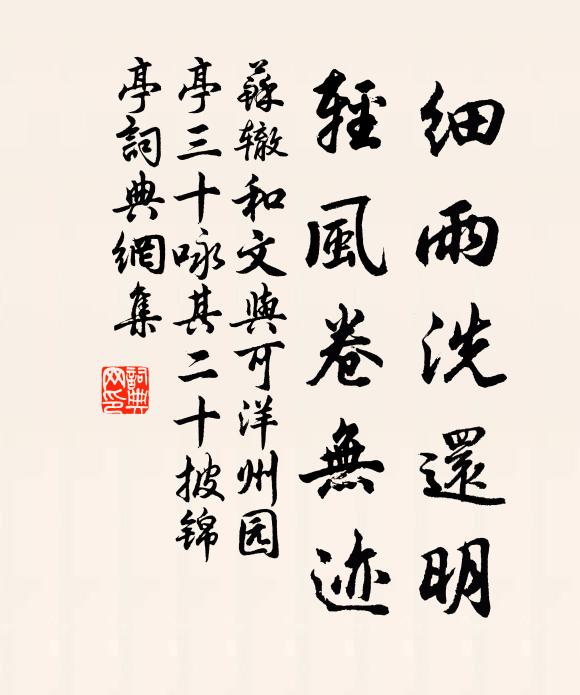 細雨洗還明
輕風卷無迹
蘇辙和文與可洋州园
亭三十咏其二十披锦
亭詞典網集
詞典
网印